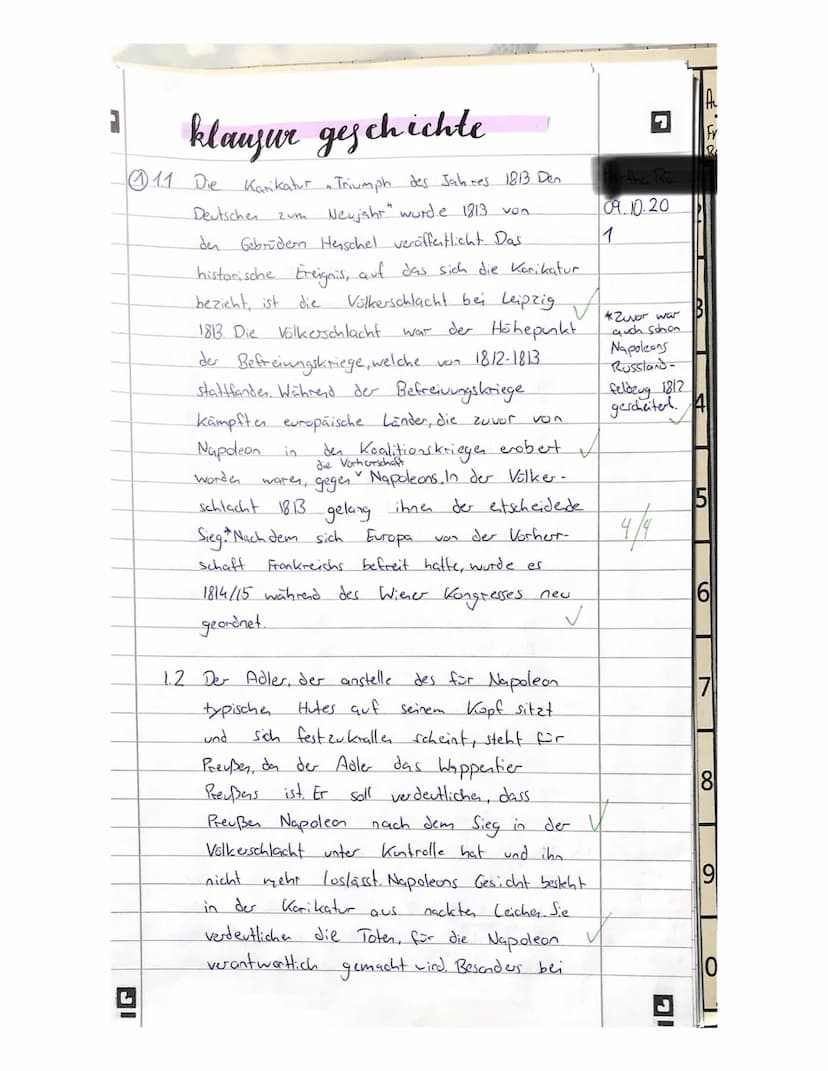 klausur geschichte
① 1.1 Die Karikatur „Triumph des Jahres 1813 Den
Deutschen zum Neujahr" wurde 1813 von
den Gebrüdern Henschel veröffentlicht. Das
historische Ereignis, auf das sich die Karikatur
bezieht, ist die Völkerschlacht bei Leipzig
1813. Die Völkerschlacht war der Höhepunkt
der Befreiungskriege, welche von 1812-1813
stattfanden. Während der Befreiungskriege
kämpften europäische Länder, die zuvor von
Napoleon in den Koalitionskriegen erobert
die Vorherrschaft
worden waren, gegen ˅ Napoleons. In der Völker-
schlacht 1813 gelang ihnen der entscheidende
Sieg.* Nachdem sich Europa von der Vorherr-
schaft Frankreichs befreit hatte, wurde es
1814/15 während des Wiener Kongresses neu
geordnet.
1.2 Der Adler, der anstelle des für Napoleon
typischen Hutes auf seinem Kopf sitzt
und sich festzukrallen scheint, steht für
Preußen, da der Adler das Wappentier
Preußens ist. Er soll verdeutlichen, dass
Preußen Napoleon nach dem Sieg in der
Völkerschlacht unter Kontrolle hat und ihn
nicht mehr loslässt. Napoleons Gesicht besteht
in der Karikatur aus nackten Leichen. Sie
verdeutlichen die Toten, für die Napoleon
verantwortlich gemacht wird. Besonders bei
09.10.20
1
*Zuvor war
auch schon
Napoleons
Russland-
feldzug 1812
gescheitert.
4/4
3
4
5
6
7
8
9
0